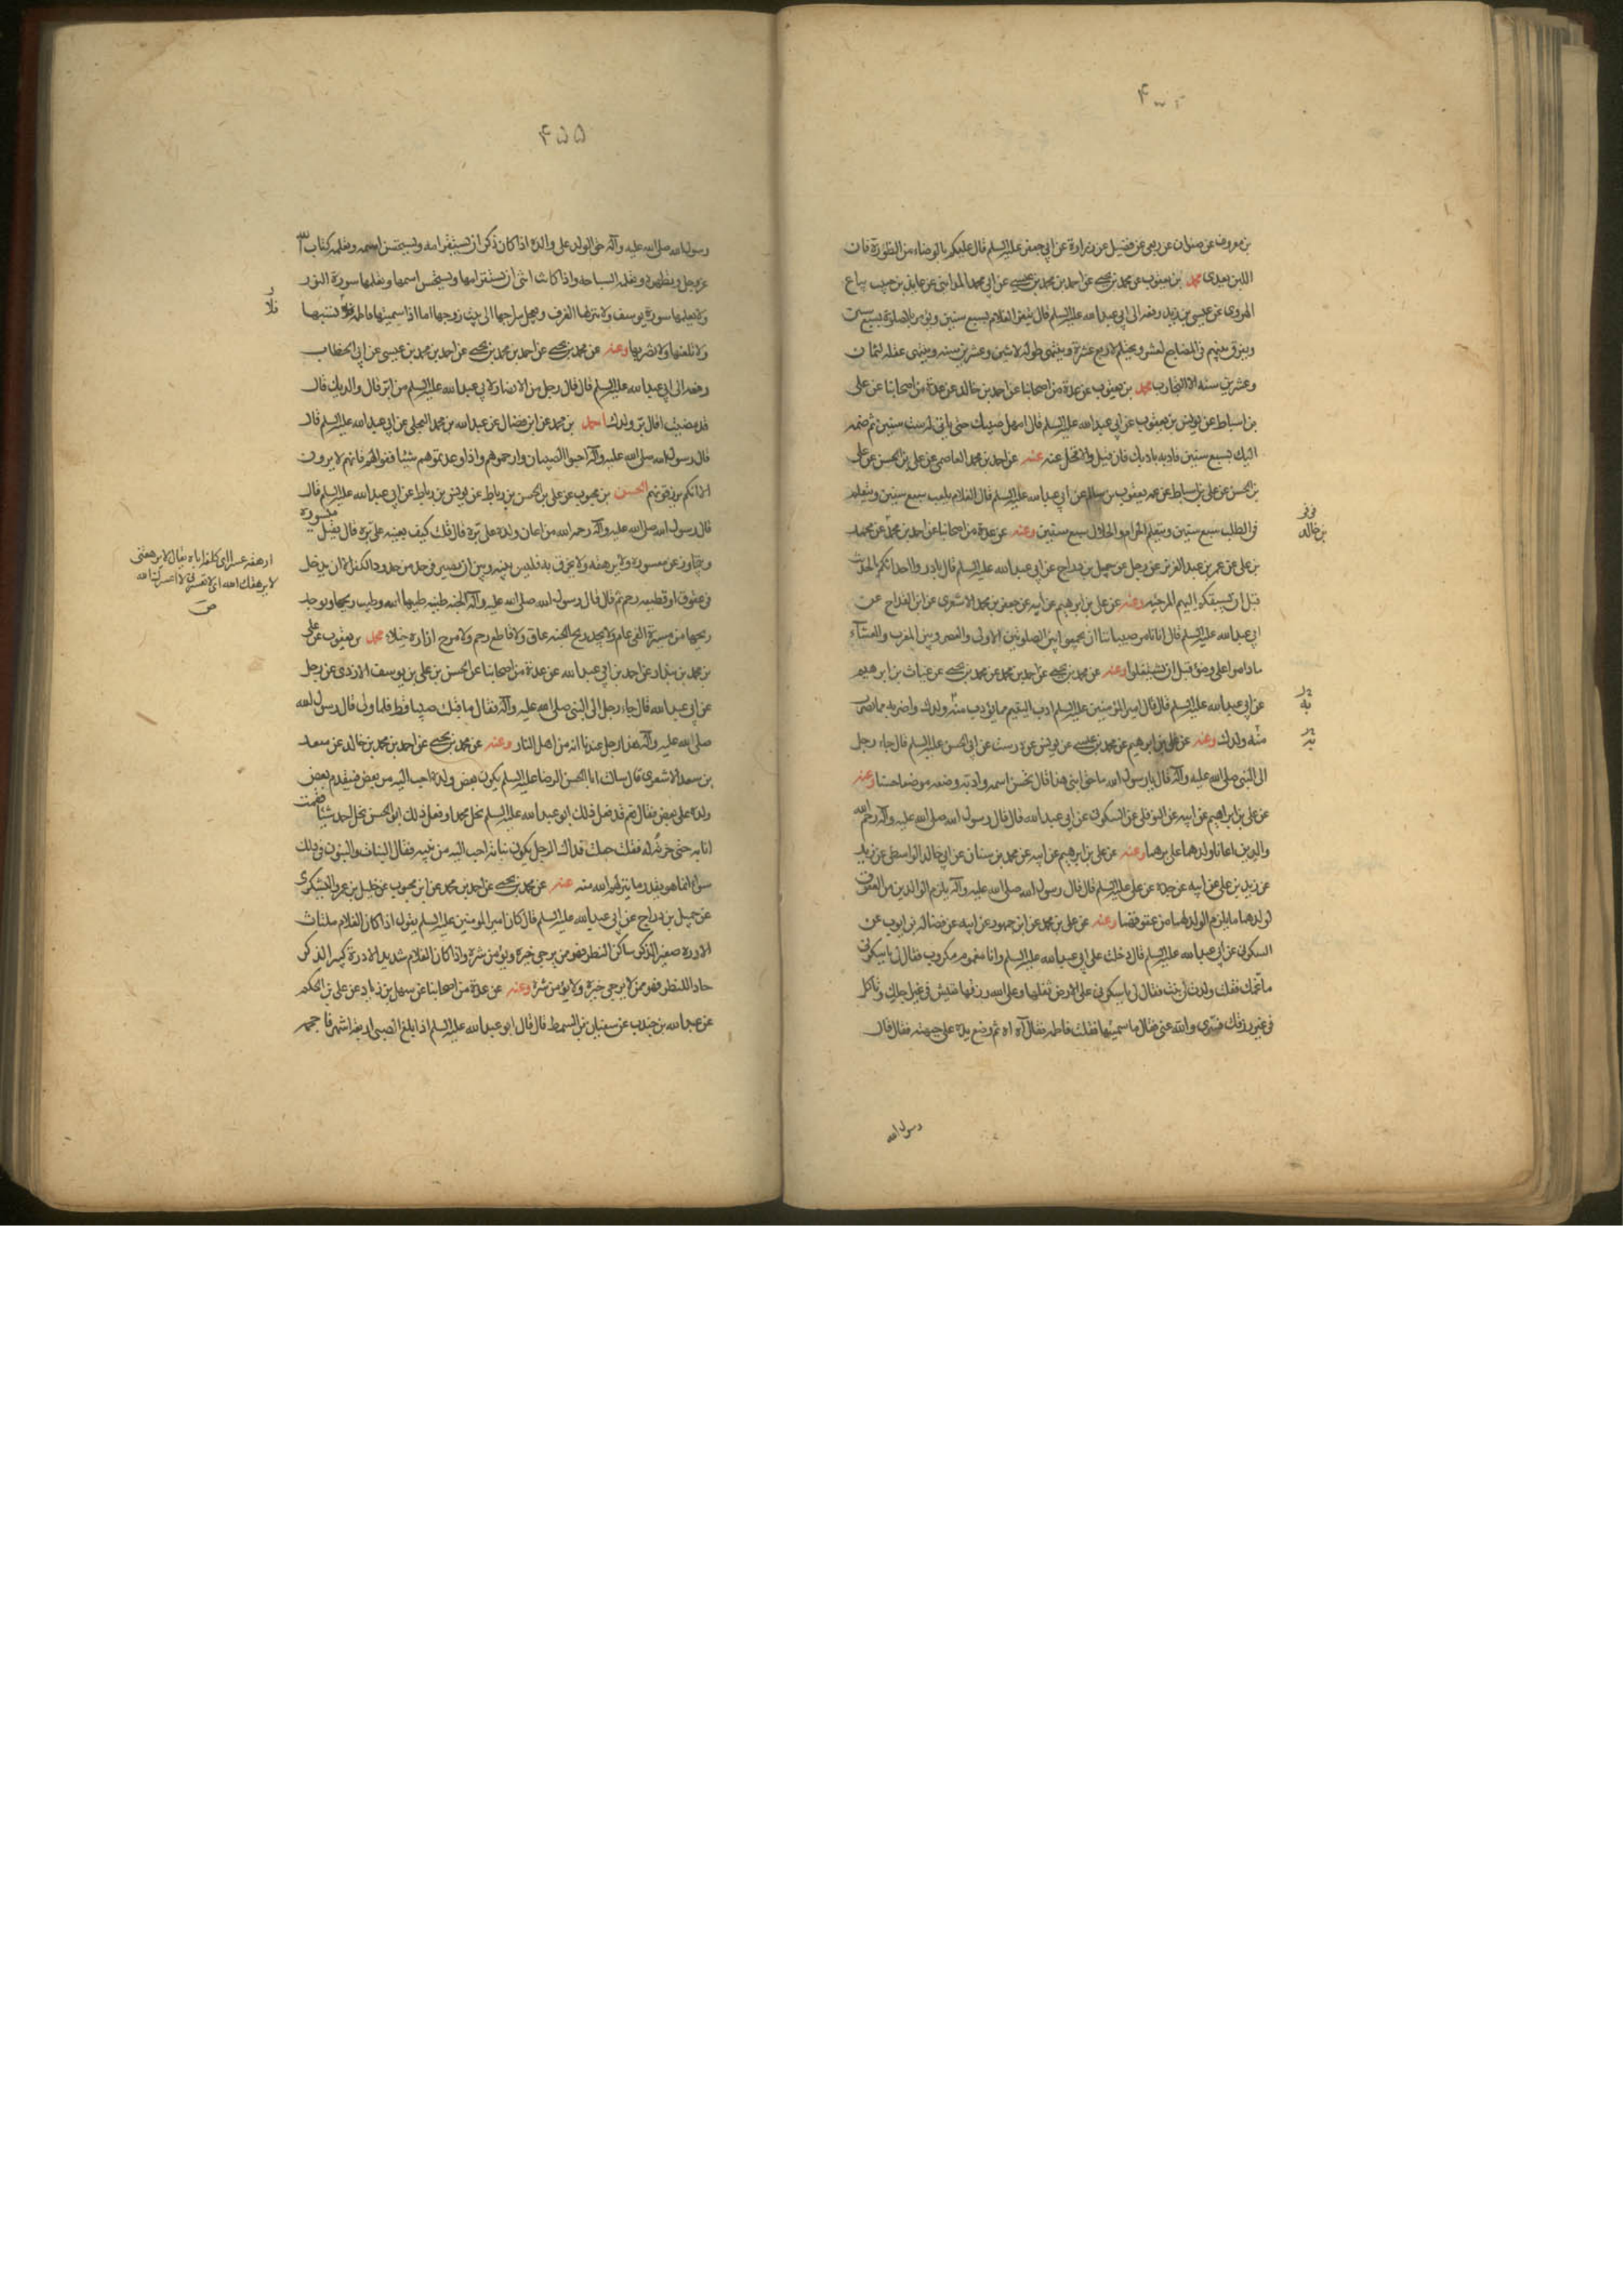 بن معروف عن صفوان عن ربعى عن فضيل عن زرارة عن ابى جعفر عليه السلم قال عليكم بالوضاء من الظؤرة فان
اللبن يعدى محمد بن يعقوب عن محمد بن يحيى عن احمد بن محمد بن عيسى عن ابى محمد المداينى عن عايذ بن حبيب بياع
الهروى عن عيسى بن زيد رفعه الى ابى عبد الله عليه السلم قال يثغر الغلام لسبع سنين ويؤمر بالصلوة لتسع سنين
ويفرق بينهم فى المضاجع لعشر ويحتلم لاربع عشرة وينتهى طوله لاثنين وعشرين سنه وينتهى عقله لثمان
وعشرين سنه الا التجارب محمد بن يعقوب عن عدة من اصحابنا عن احمد بن خالد عن عدة من اصحابنا عن على
بن اسباط عن يونس بن يعقوب عن ابى عبد الله عليه السلم قال امهل صبيك حتى ياتى له ست سنين ثم ضمه
اليك سبع سنين فادبه بادبك فان قبل والا فخل عنه عنه عن احمد بن محمد العاصمى عن على بن الحسن عن على
بن الحسن عن على بن اسباط عن عمه يعقوب بن سالم عن ابى عبد الله عليه السلم قال الغلام يلعب سبع سنين ويتعلم
فى الطلب سبع سنين ويتعلم الحرام والحلال سبع سنين وعنه عن عدة من اصحابنا عن احمد بن محمد عن محمد
بن على عن عمر بن عبد العزيز عن رجل عن جميل بن دراج عن ابى عبد الله عليه السلم قال بادروا احداثكم بالحديث
قبل ان تسبقكم اليهم المرجئه وعنه عن على بن ابرهيم عن ابيه عن جعفر بن محمد الاشعرى عن ابن القداح عن
ابى عبد الله عليه السلم قال انا نامر صبياننا ان يجمعوا بين الصلوتين الاولى والعصر وبين المغرب والعشآء
ماداموا على وضوء قبل ان يشتغلوا وعنه عن محمد بن يحيى عن احمد بن محمد عن محمد بن يحيى عن غياث بن ابرهيم
عن ابى عبد الله عليه السلم قال قال امير المؤمنين عليه السلم ادب اليتيم مما تؤدب منه ولدك واضربه مما تضرب
منه ولدك وعنه عن على بن ابرهيم عن محمد بن عيسى عن يونس عن درست عن ابى الحسن عليه السلم قال جاء رجل
الى النبى صلى الله عليه وآله قال يا رسول الله ما حق ابنى هذا قال تحسن اسمه وادبه وضعه موضعا حسنا وعنه
عن على بن ابراهيم عن ابيه عن النوفلى عن السكونى عن ابى عبد الله قال قال رسول الله صلى الله عليه وآله رحم الله
والدين اعانا ولدهما على برهما وعنه عن على بن ابرهيم عن ابيه عن محمد بن سنان عن ابى خالد الواسطى عن زيد
عن زيد بن على عن ابيه عن جده عن على عليه السلم قال قال رسول الله صلى الله عليه وآله يلزم الوالدين من العقوق
لولدهما ما يلزم الولد لهما من عقوقهما وعنه عن على بن محمد عن ابن جمهور عن ابيه عن فضاله بن ايوب عن
السكونى عن ابى عبد الله عليه السلم قال دخلت على ابى عبد الله عليه السلم وانا مغموم مكروب فقال لى يا سكونى
ما غمك فقلت ولدت لى بنت فقال لى يا سكونى على الارض ثقلها وعلى الله رزقها تعيش فى غير اجلك وتاكل
فى غير رزقك فسرى والله عنى فقال ما سميتها فقلت فاطمه فقال آه اه ثم وضع يده على جبهته فقال قال
رسول الله
بن خالد
۴۵۵
رسول الله صلى الله عليه وآله حق الولد على والده اذا كان ذكرا ان يستفره امه ويستحسن اسمه ويعلمه كتاب الله
عز وجل ويطهره ويعلمه السباحه واذا كانت انثى ان يستفره امها ويستحسن اسمها ويعلمها سورة النور
ولا يعلمها سورة يوسف ولا ينزلها الغرف ويعجل سراحها الى بيت زوجها اما اذا سميتها فاطمه فلا تسبها
ولا تلعنها ولا تضربها وعنه عن محمد بن يحيى عن احمد بن محمد بن يحيى عن احمد بن محمد بن عيسى عن ابى الخطاب
رفعه الى ابى عبد الله عليه السلم قال قال رجل من الانصار لابى عبد الله عليه السلم من ابر قال والديك قال
قد مضيا قال بر ولدك احمد بن محمد عن ابن فضال عن عبد الله بن محمد البجلى عن ابى عبد الله عليه السلم قال
قال رسول الله صلى الله عليه وآله احبوا الصبيان وارحموهم واذا وعدتموهم شيئا ففوا لهم فانهم لا يرون
الا انكم ترزقونهم الحسن بن محبوب عن على بن الحسن بن رباط عن يونس بن رباط عن ابى عبد الله عليه السلم قال
قال رسول الله صلى الله عليه وآله رحم الله من اعان ولده على بره قال قلت كيف يعينه على بره قال يقبل ميسوره
ويتجاوز عن معسوره ولا يرهقه ولا يخرق به فليس بينه وبين ان يصير فى حد من حدود الكفر الا ان يدخل
فى عقوق او قطيعه رحم ثم قال قال رسول الله صلى الله عليه وآله الجنه طيبه طيبها الله وطيب ريحها ويوجد
ريحها من مسيرة الفى عام ولا يجد ريح الجنه عاق ولا قاطع رحم ولا مرخ ازاره خيلاء محمد بن يعقوب عن على
بن محمد بن بندار عن احمد بن ابى عبد الله عن عدة من اصحابنا عن الحسن بن على بن يوسف الازدى عن رجل
عن ابى عبد الله قال جاء رجل الى النبى صلى الله عليه وآله فقال ما قبلت صبيا قط فلما ولى قال رسول الله
صلى الله عليه وآله هذا رجل عندنا انه من اهل النار وعنه عن محمد بن يحيى عن احمد بن محمد بن خالد عن سعد
بن سعد الاشعرى قال سالت ابا الحسن الرضا عليه السلم يكون بعض ولده احب اليه من بعض فيقدم بعض
ولده على بعض فقال نعم قد فعل ذلك ابو عبد الله عليه السلم نحل محمدا وفعل ذلك ابو الحسن نحل احمد شيئا فقمت
انا به حتى حزته له فقلت جعلت فداك الرجل يكون بناته احب اليه من بنيه فقال البنات والبنون فى ذلك
سواء انما هو بقدر ما ينزلهم الله منه عنه عن محمد بن يحيى عن احمد بن محمد عن ابن محبوب عن خليل بن عمرو اليشكرى
عن جميل بن دراج عن ابى عبد الله عليه السلم قال كان امير المومنين عليه السلم يقول اذا كان الغلام ملتاث
الادره صغير الذكر ساكن النظر فهو ممن يرجى خيره ويؤمن شره واذا كان الغلام شديد الادرة كبير الذكر
حاد النظر فهو ممن لا يرجى خيره ولا يؤمن شره وعنه عن عدة من اصحابنا عن سهل بن زياد عن على بن الحكم
عن عبد الله بن جندب عن سفيان بن السمط قال قال ابو عبد الله عليه السلم اذا بلغ الصبى اربعه اشهر فاحجمه
ارهقه عسرا اى كلفه اياه يقال لا ترهقنى
لا ارهقك الله اى لا تعسرنى لا اعسرك الله
ص